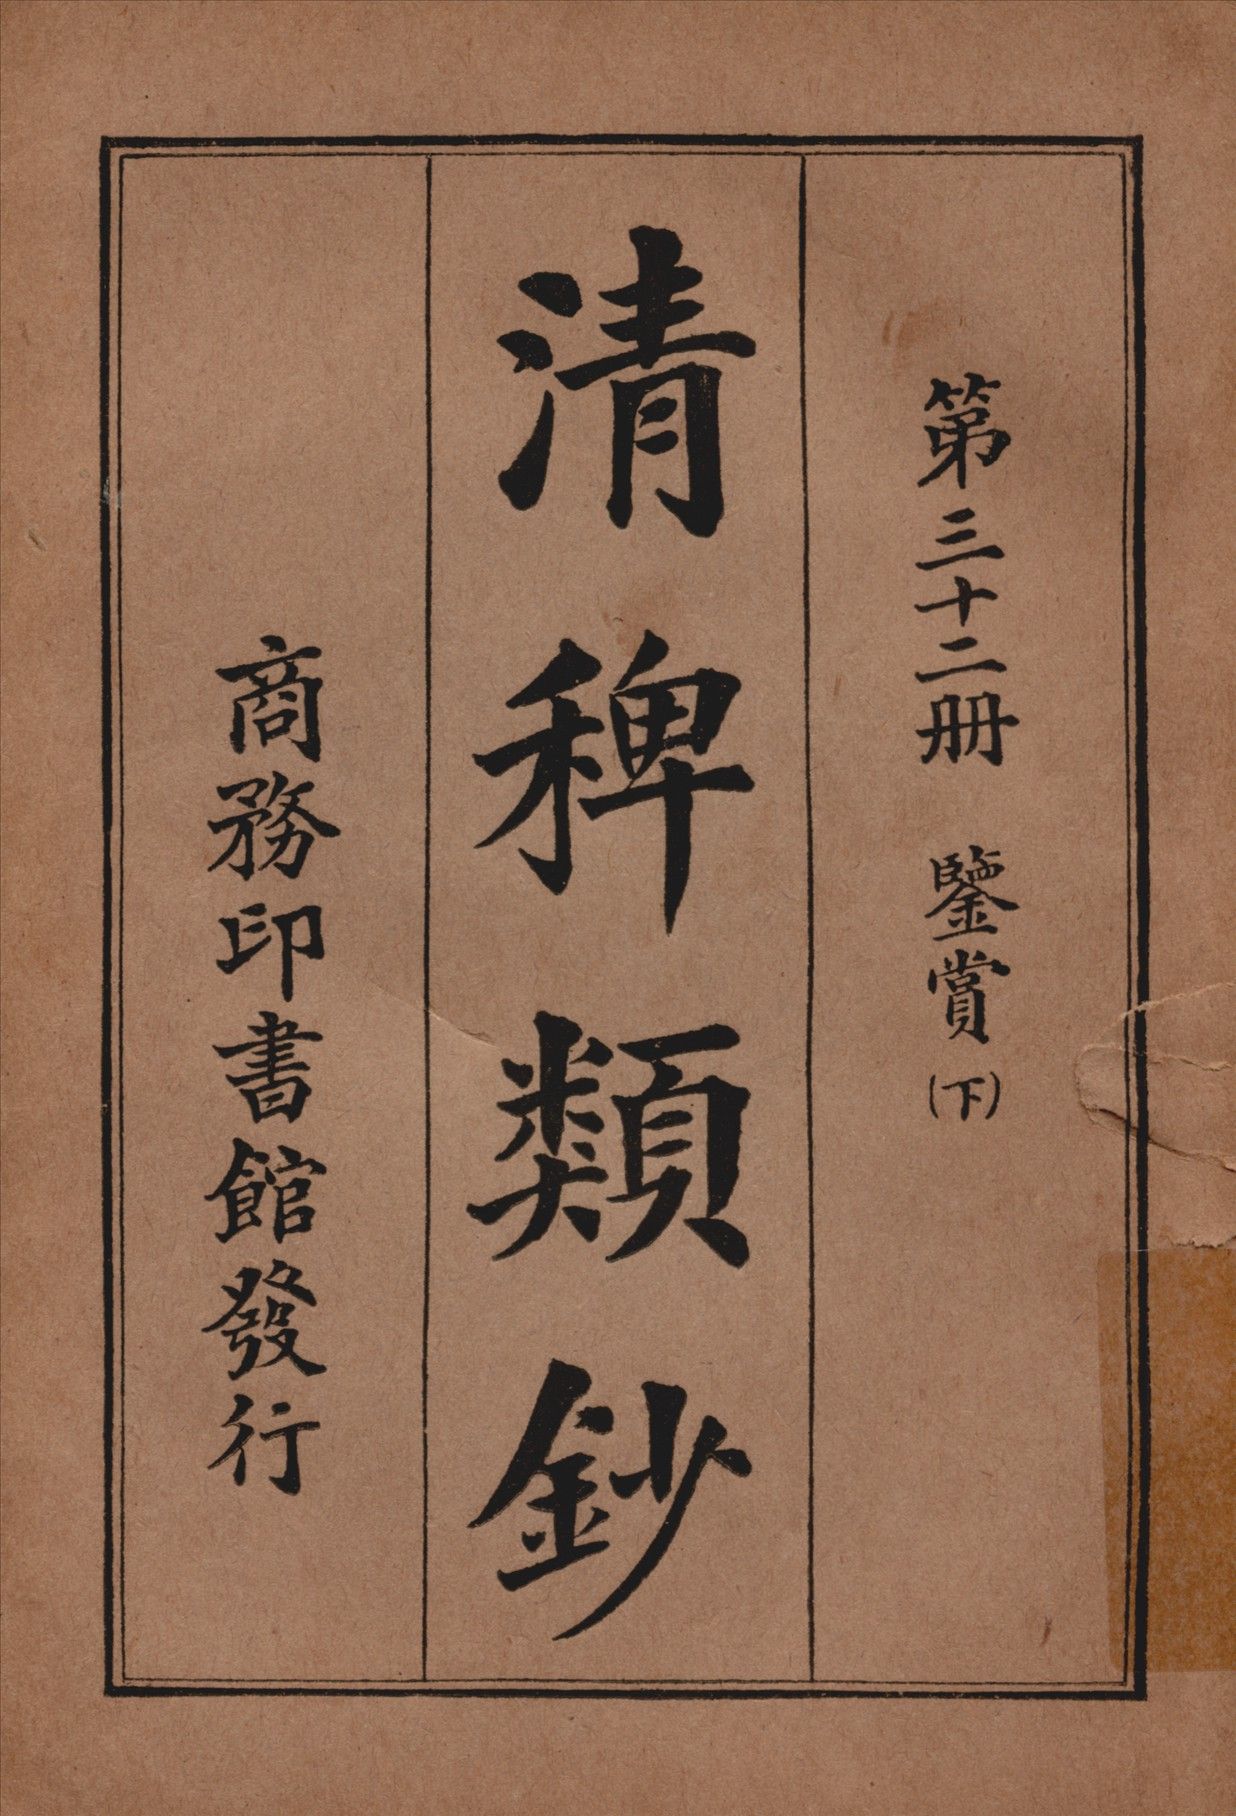 第三十二册 鑒賞(下)
清稗類鈔
商務印書館發行